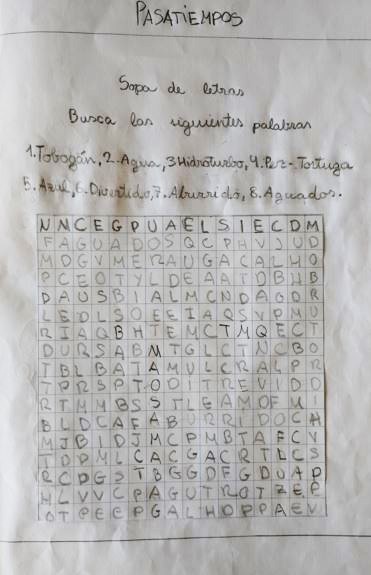 PASATIEMPOS
Sopa de letras
Busca las siguientes palabras
1.Tobogán, 2.Agua, 3 Hidrotubo, 4.Pez-Tortuga
5.Azul, 6.Divertido, 7.Aburrido, 8.Aguados.
N N C E G P U A E L S I E C D M
F A G U A D O S Q C P H V J U D
M D G V M E R A U G A C A L H O
P C E O T Y L D E A A T D B H B
D A U S B I A L M C N D A O D R
L E D L S O E E I A Q S V P M U
R I A Q B H T E M C T M Q E C T
D U R S A B M T G L C T N C B O
T B L B A T A M U L C R A L P R
T P R S P T O D I T R E V I D D
R T M M B S S T L E A M O F U I
B L D C A F A B U R R I D O C H
M J B I D J M C P M B T A F C V
T D P M L C A C G A C R T L C S
R C D G S T B G G D F G D U A D
H L V V C P A G U T R O T Z E P
O T P E E P G A L H O P P A E V